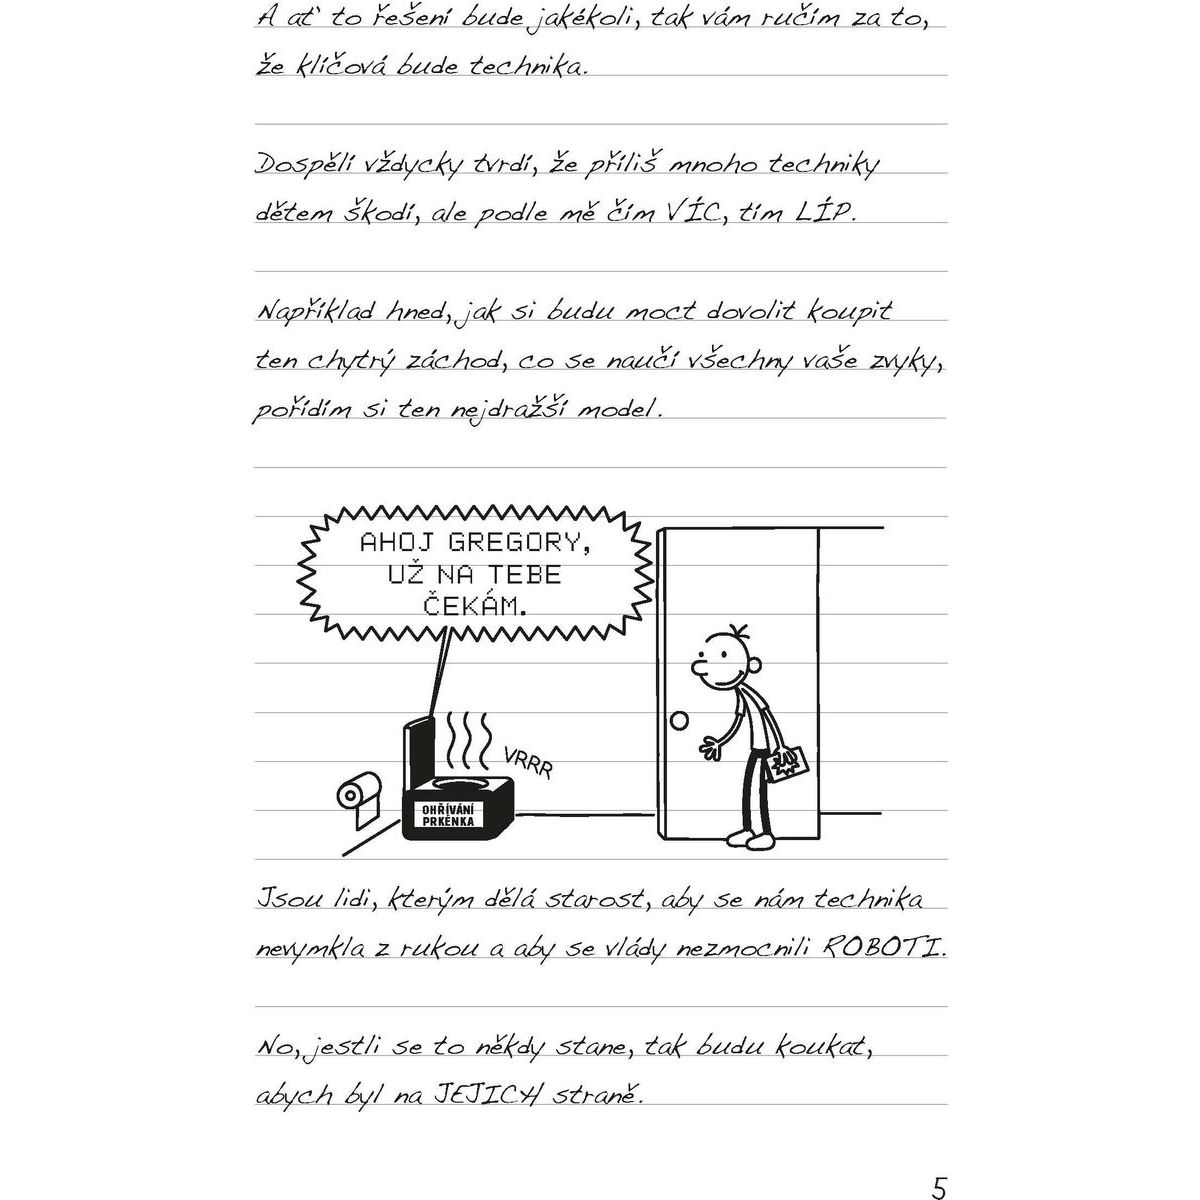 A ať to řešení bude jakékoli, tak vám ručím za to,
že klíčová bude technika.
Dospělí vždycky tvrdí, že příliš mnoho techniky
dětem škodí, ale podle mě čím VÍC, tím LÍP.
Například hned, jak si budu moct dovolit koupit
ten chytrý záchod, co se naučí všechny vaše zvyky,
pořídím si ten nejdražší model.
AHOJ GREGORY,
UŽ NA TEBE
ČEKÁM.
VRRR
OHŘÍVÁNÍ
PRKÉNKA
Jsou lidi, kterým dělá starost, aby se nám technika
nevymkla z rukou a aby se vlády nezmocnili ROBOTI.
No, jestli se to někdy stane, tak budu koukat,
abych byl na JEJICH straně.
5